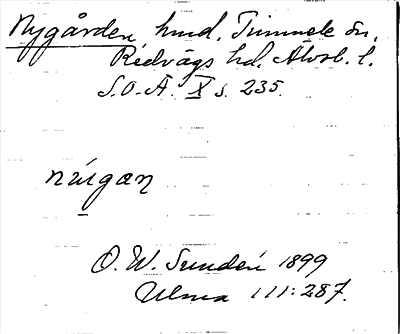 Nygården hmd. Timmele sn.
Redvägs hd. Älvsb. l.
S.O.Ä. X s. 235.
núigan
O. W. Sundén 1899
Ulma 111:287.